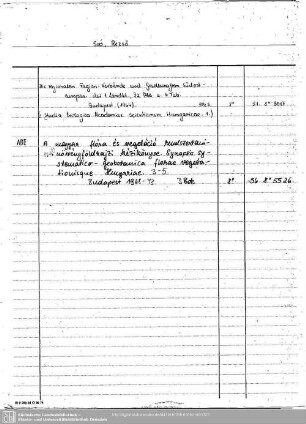 Soó, Rezső
Die regionalen Fagion-Verbände und Gesellschaften Südost-
europas.
Budapest (1964). 8° 51. 8° 3017
(Studia biologica Academiae scientiarum Hungaricae. 1.)
A magyar flóra és vegetáció rendszertani-
növényföldrajzi kézikönyve. Synopsis sy-
stematico-geobotanica florae vegeta-
tionisque Hungariae. 3-5
Budapest 8° 56. 8° 5526
Sächsische Landesbibliothek -
Staats- und Universitätsbibliothek Dresden